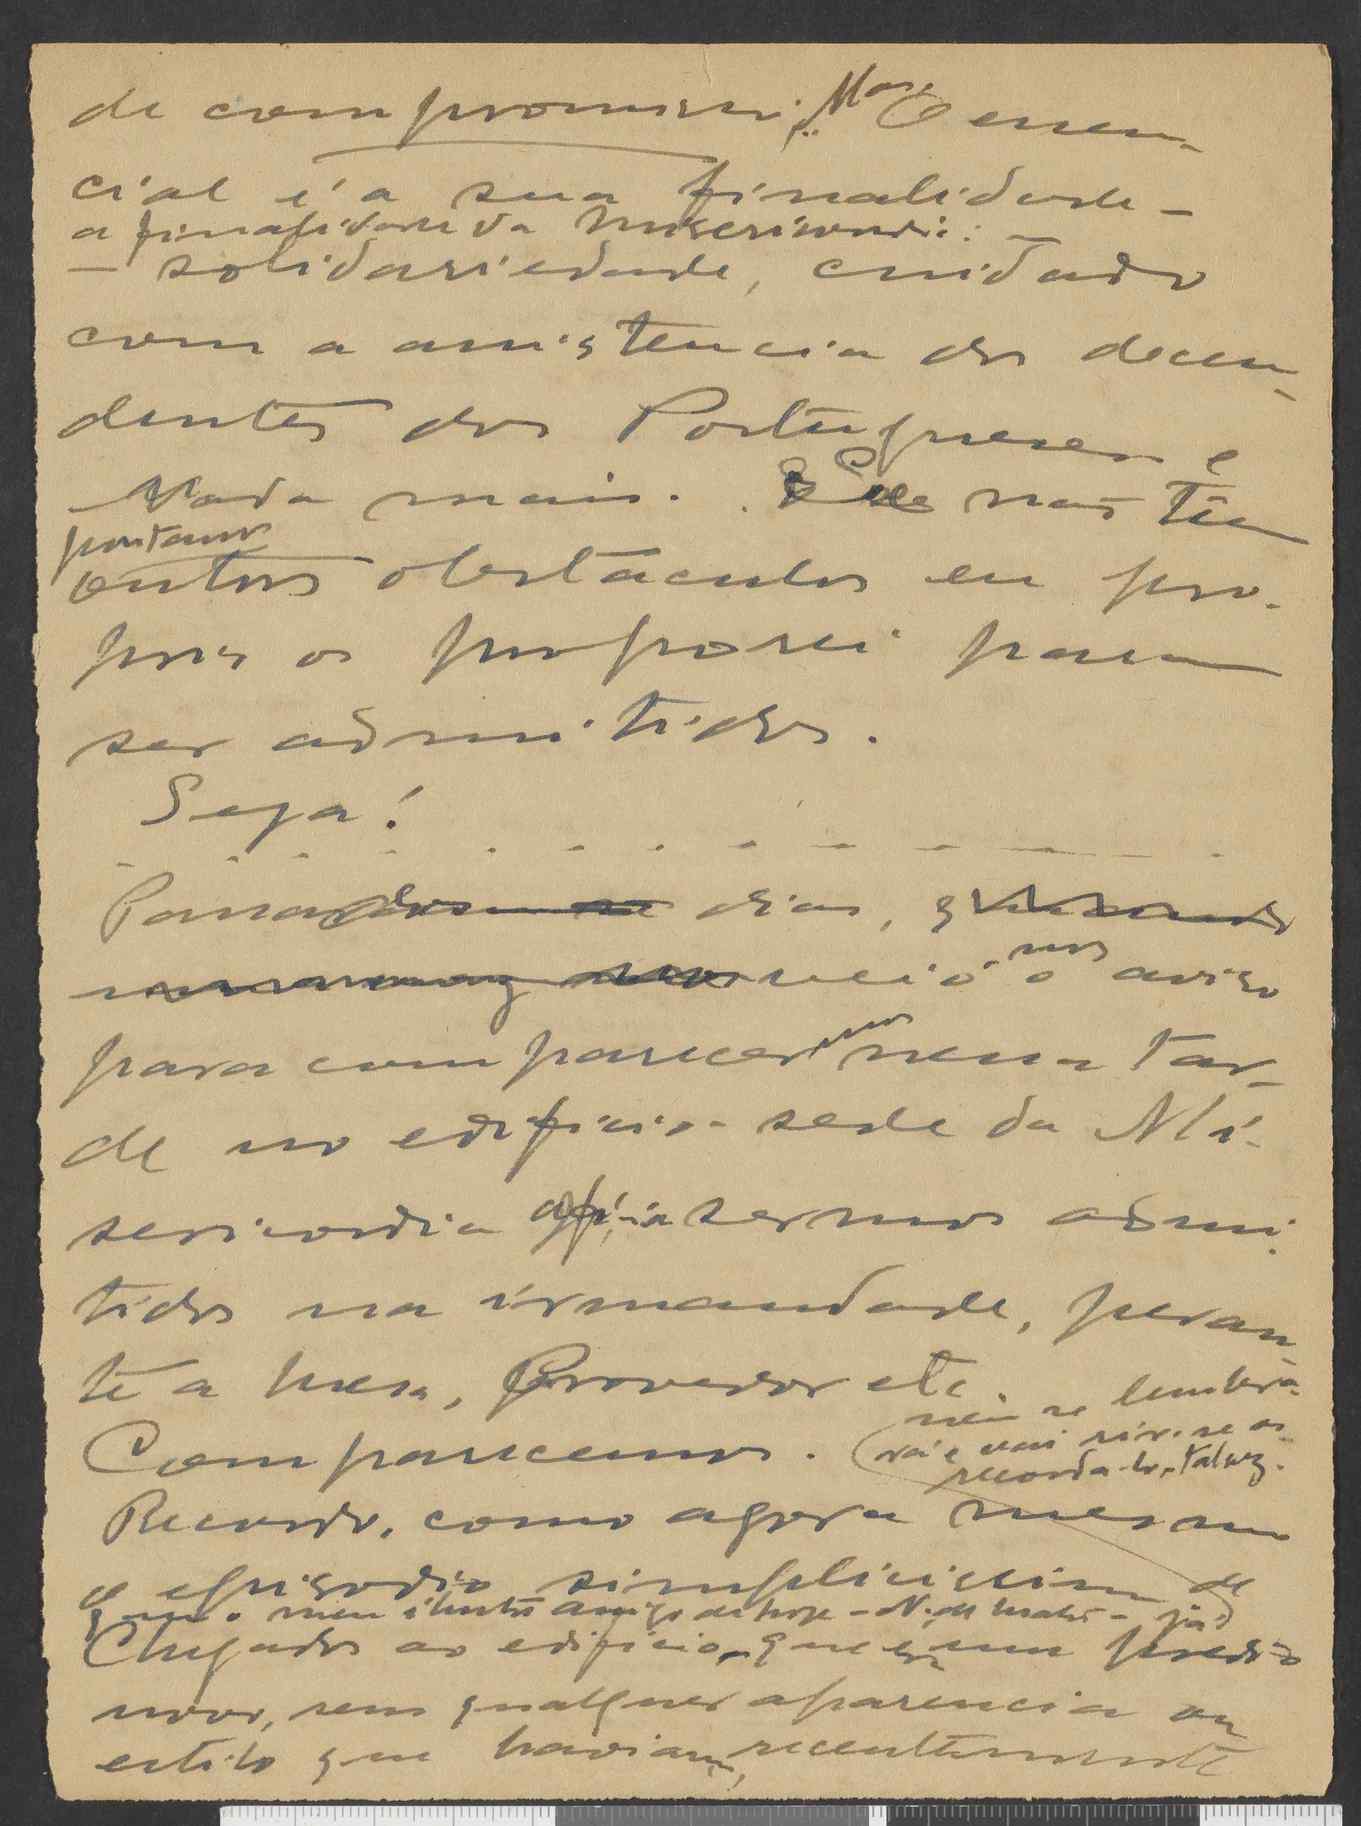 de compromisso. Mas O essen-
cial é a sua finalidade -
a finalidade da Misericordia: -
- solidariedade, cuidado
com a assistencia dos decen-
dentes dos Portugueses e
Nada mais. Se não têm
portanto
outros obstaculos eu pro-
pros os proporei para
ser admitidos.
Seja!
Passados dias,
veio nos o aviso
para comparecermos nessa tar-
de no edificio sede da Mi-
sericordia afim sermos admi-
tidos na irmandade, peran-
te a mesa, Provedor etc.
nem se lembra-
Comparecemos. (rá e vai rir-se ao
recorda-lo, talvez.
Recordo, como agora mesmo
o episodio simplicissimo de
que o meu ilustre amigo de hoje - N. de Matos - já
Chegados ao edificio, que era um predio
novo, sem qualquer aparencia ou
estilo que haviam, recentemente